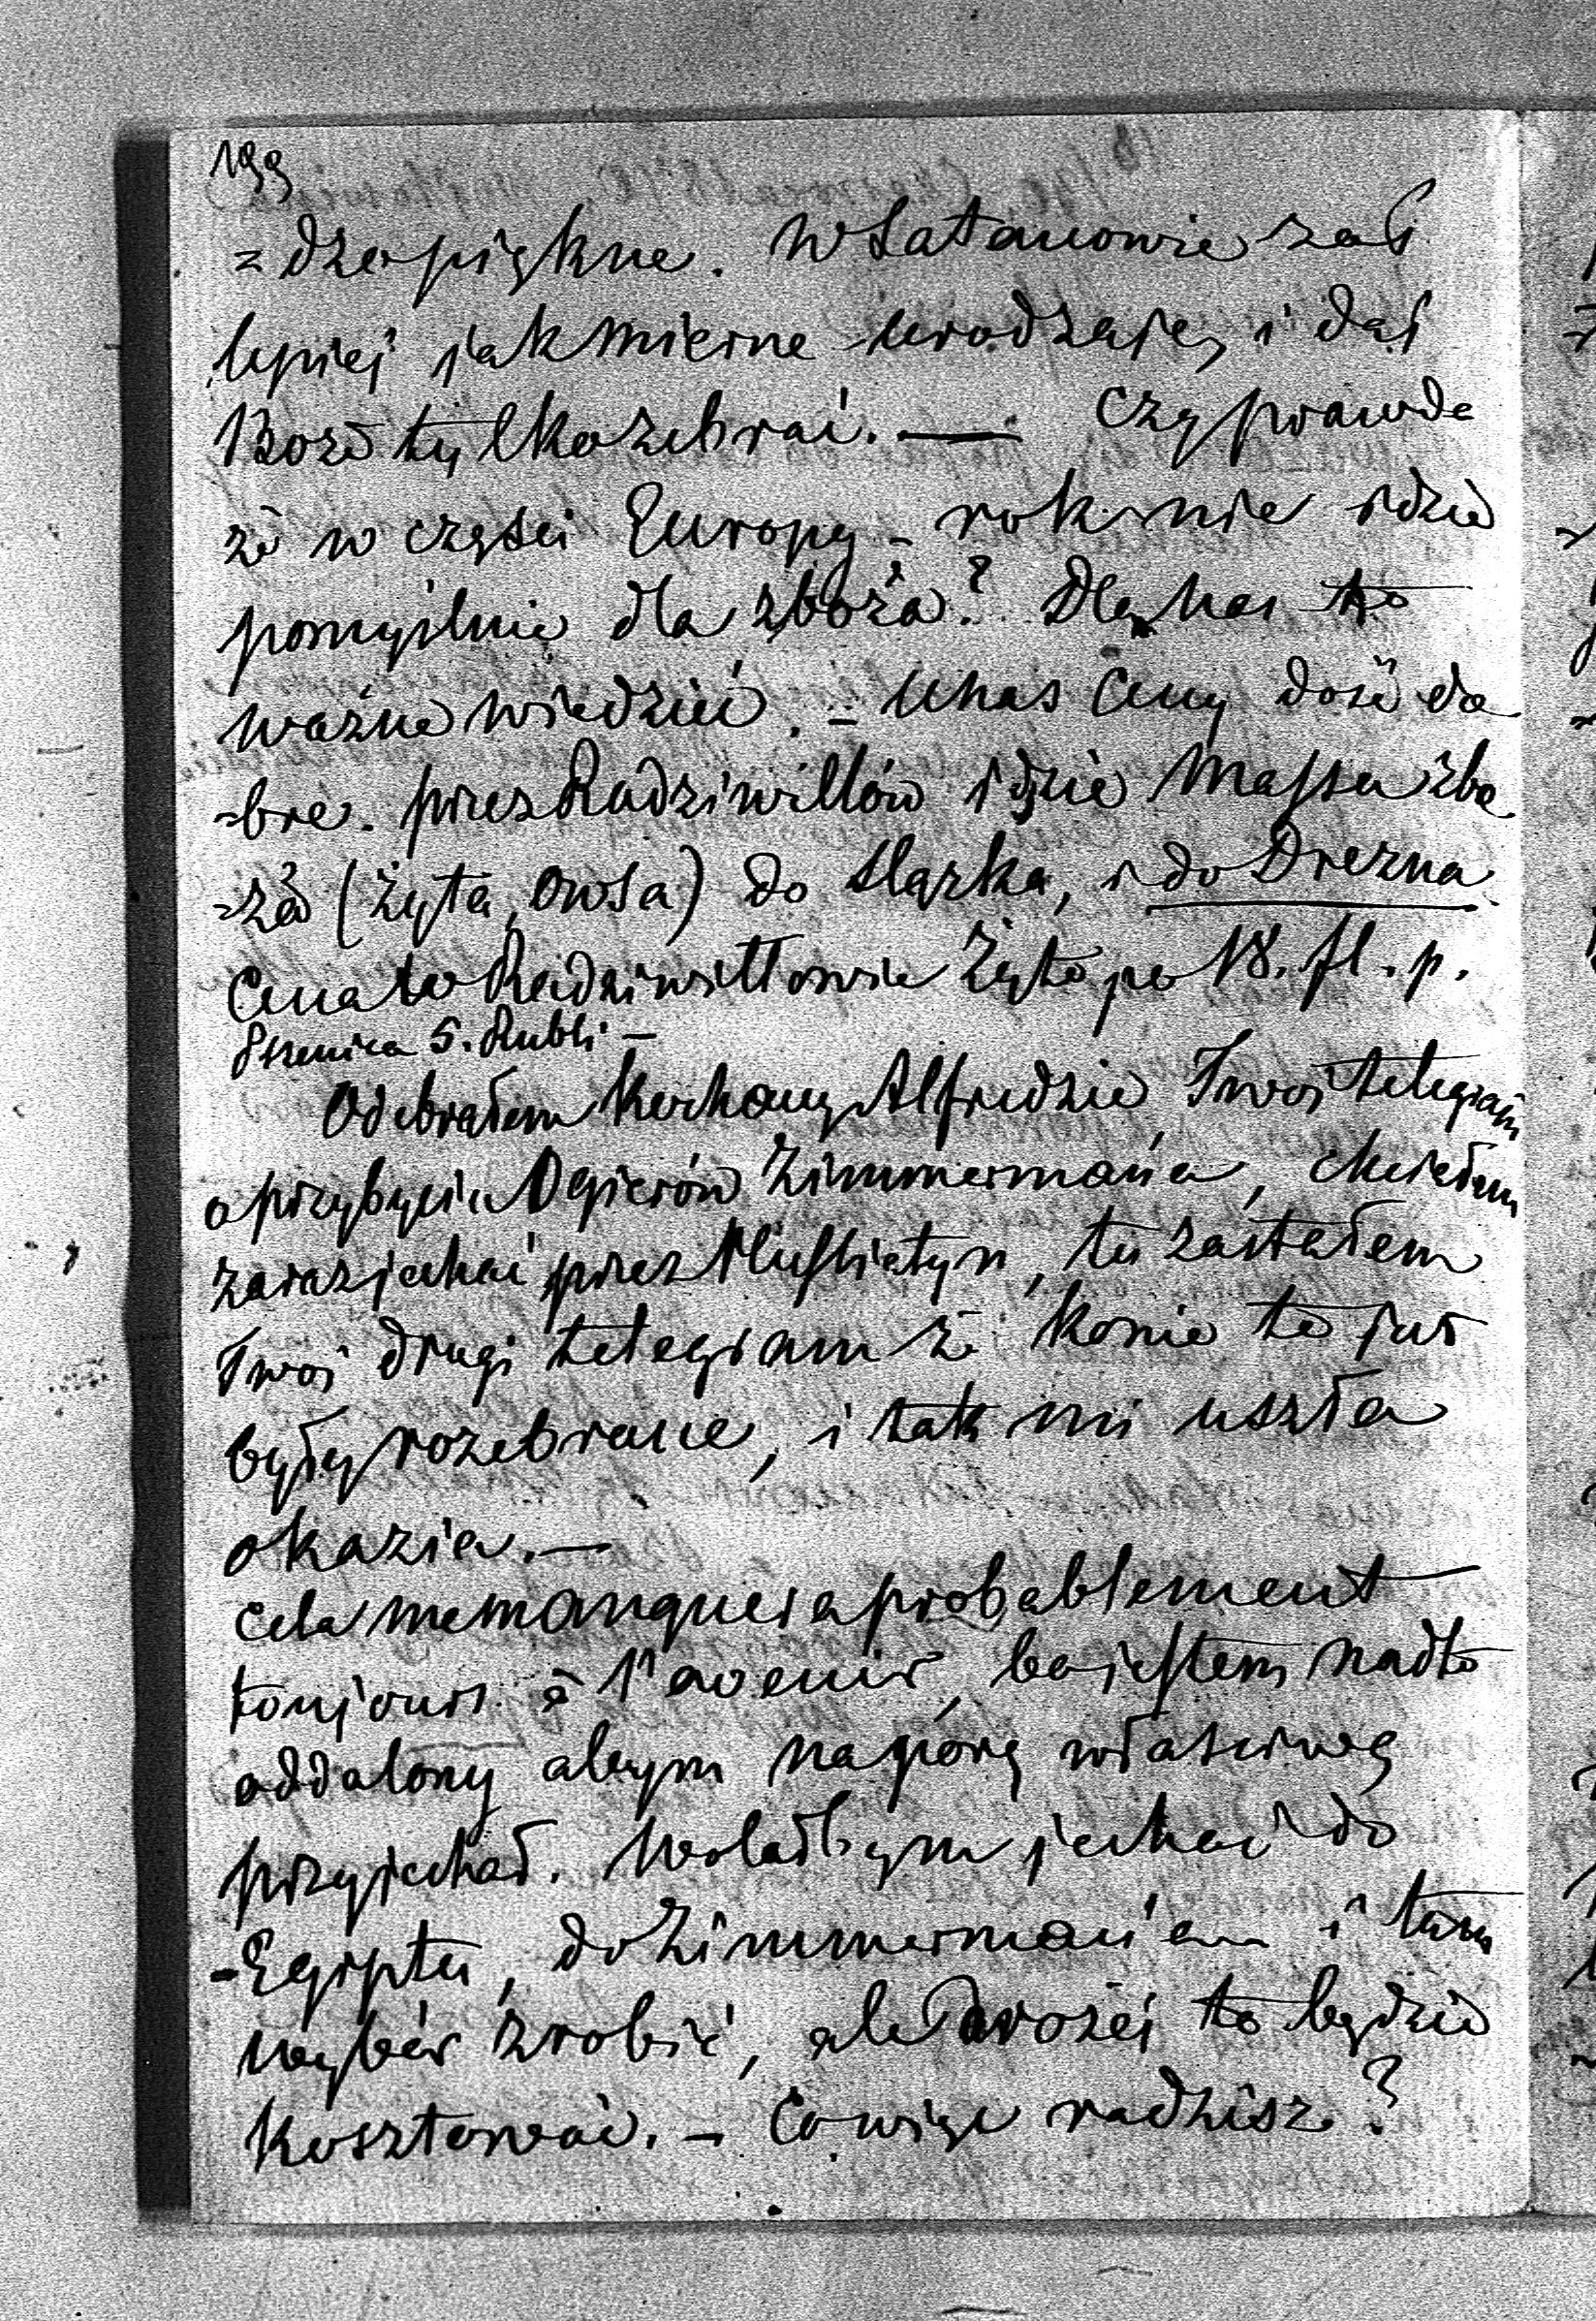 199
=dzo piękne. W Satanowie zaś
lepiej jak mierne urodzaje, i daj
Boże tylko zebrać. — Czy prawda
że w części Europy – rok nie idzie
pomyślnie dla zboża? Dla nas to
ważne wiedzieć. – U nas Ceny dość do
-bre. przez Radziwiłłów idzie Massa zbo
=ża (żyta, owsa) do Slązka, i do Drezna
Cena w Radziwiłłowie Żyto po 18. fl. p.
Pszenica 5. Rubli –
Odebrałem Kochany Alfredzie, Twoj telegram
o przybyciu Ogierów Zimmermana, chciałem
zaraz jechać przez Hussiatyn, tu zastałem
Twoj drugi telegram że konie te już
były rozebrane, i tak mi uszła
okazia. —
Cela me manquera probablement
toujours à l'avenir, bo jestem nadto
oddalony abym na porę właściwą
przyjechał. Wolałbym jechać do
-Egiptu, do Zimmermana i tam
wybór zrobić, ale drożej to będzie
kosztować. – Co więc radzisz?